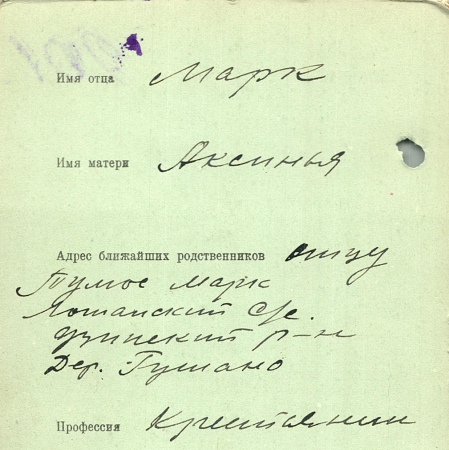 Имя отца Марк
Имя матери Аксинья
Адрес ближайших родственников отцу
Марк
с/с.
р-н
Дер. Гумано
Профессия Крестьянин